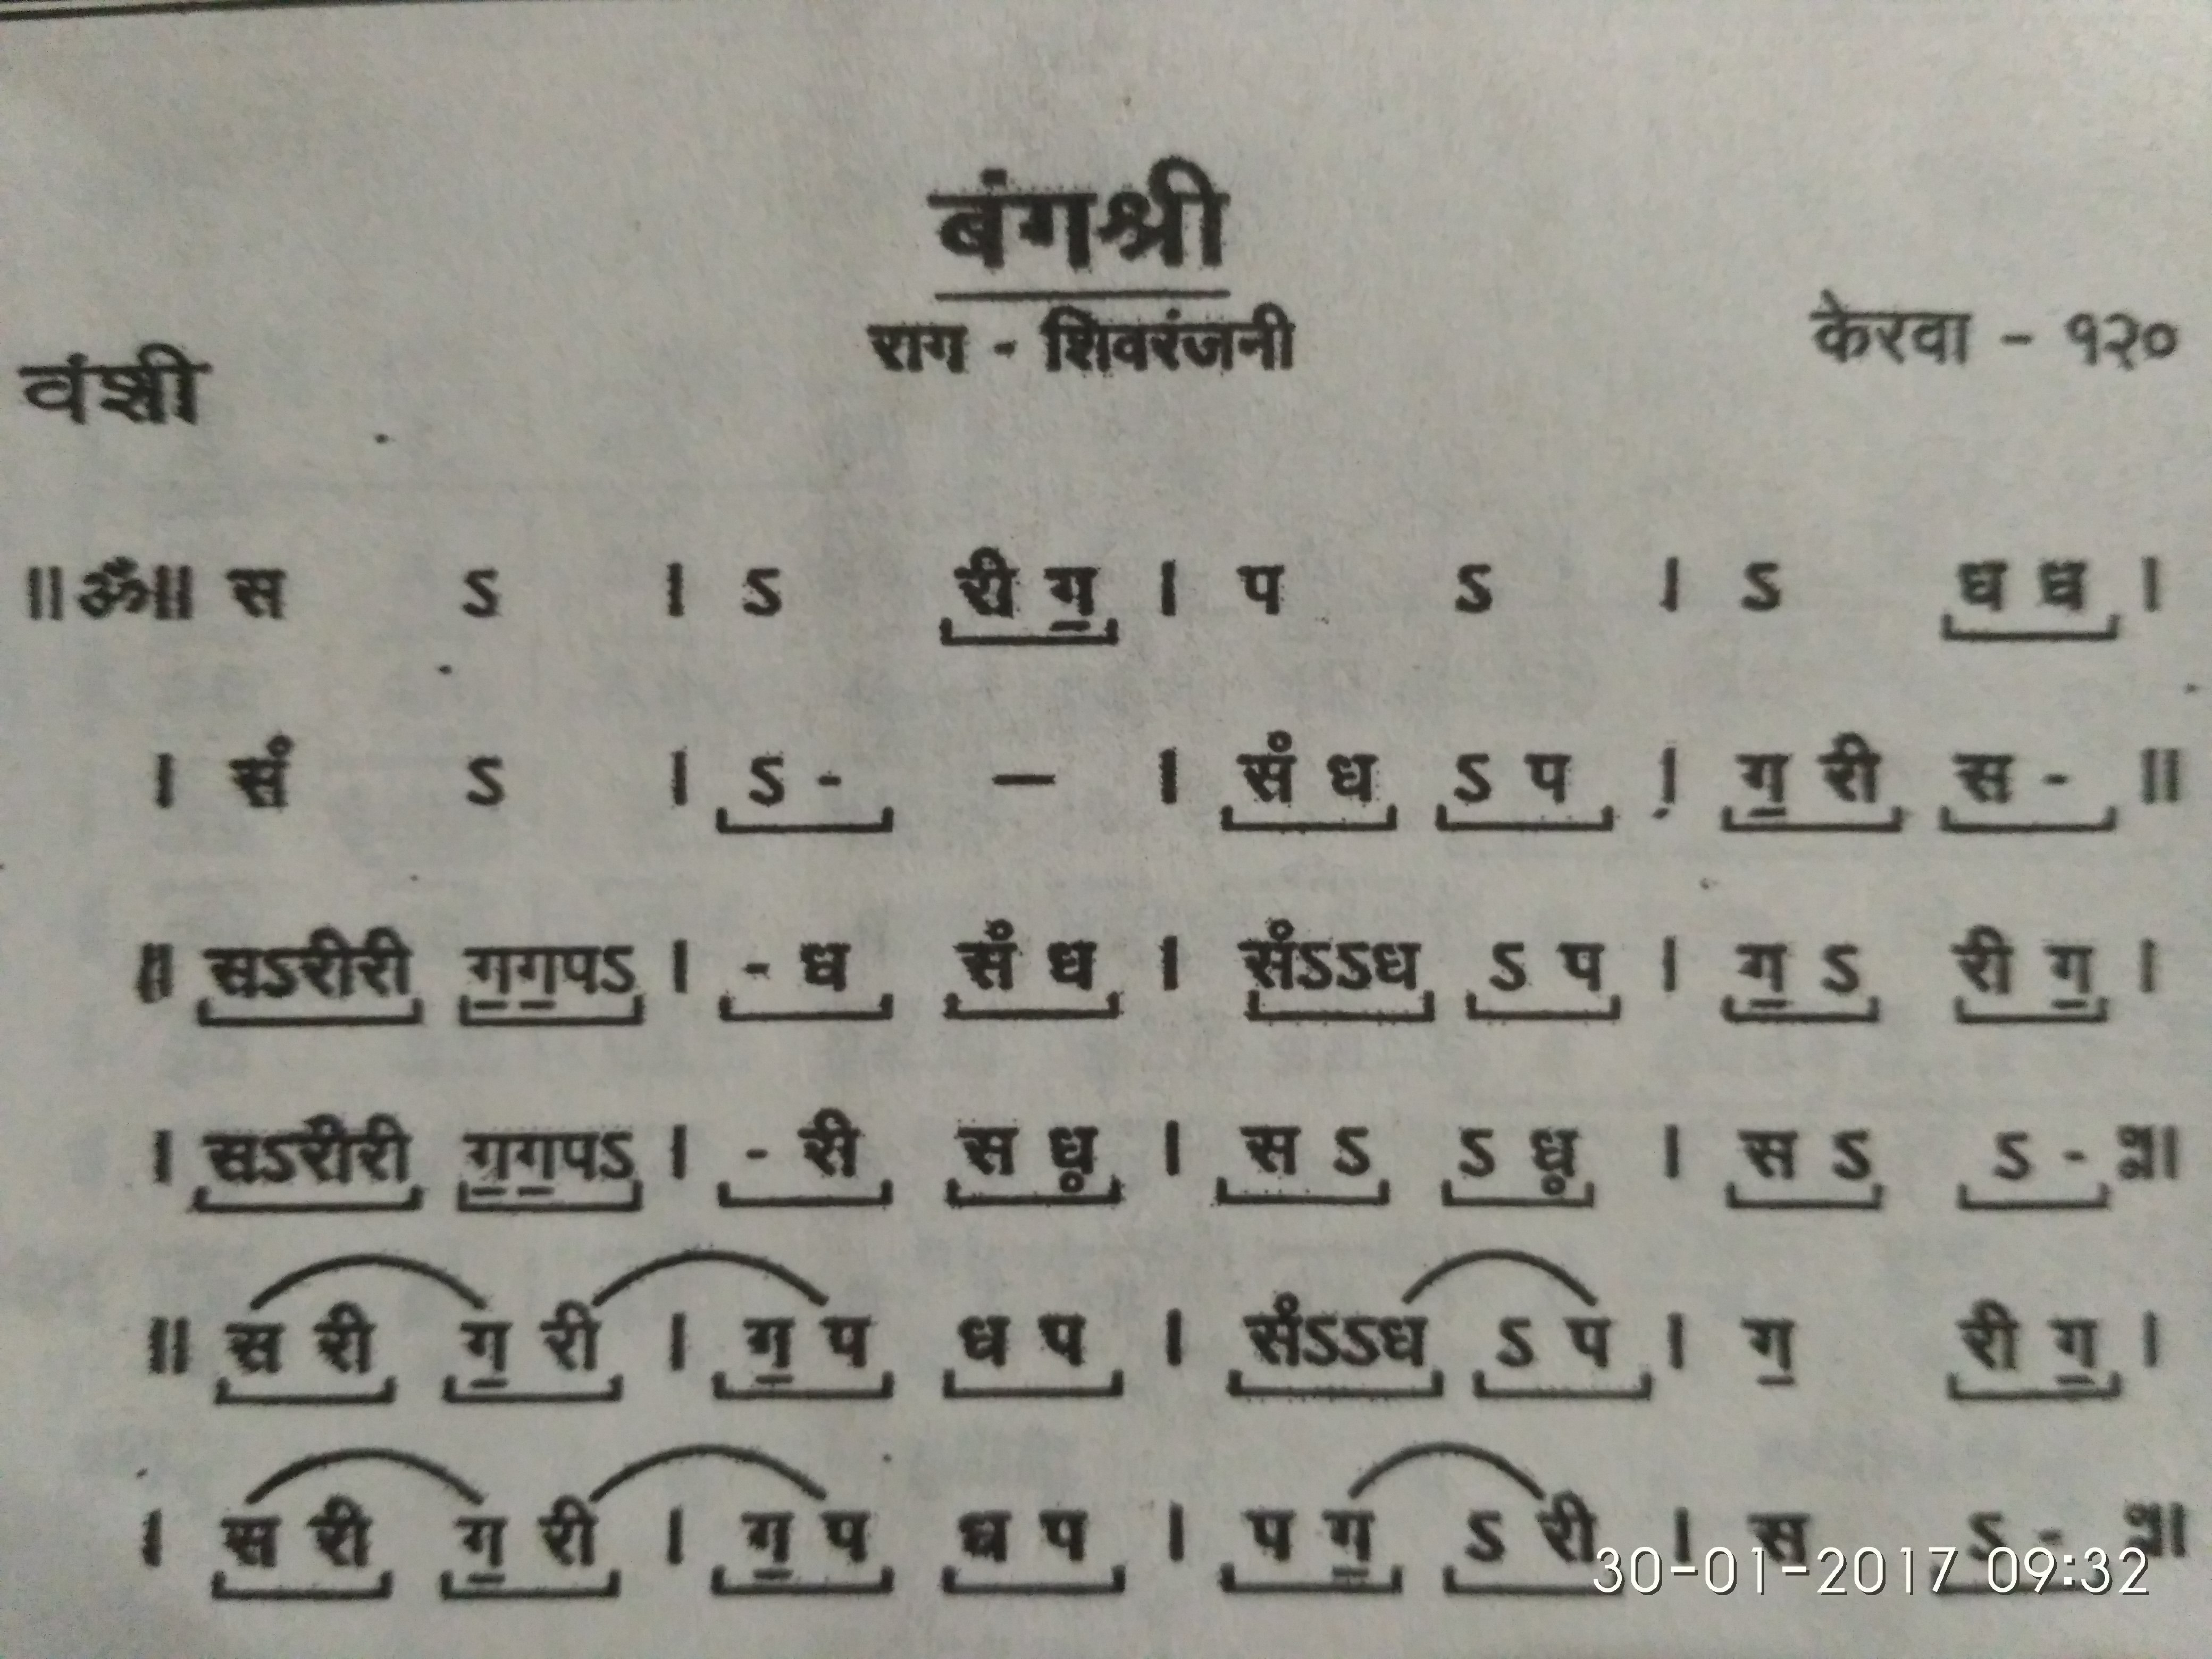 बंगश्री
राग - शिवरंजनी
केरवा - १२०
वंशी
॥ॐ॥ स ऽ । ऽ री ग॒ । प ऽ । ऽ ध ध ।
। सं ऽ । ऽ - — । सं ध ऽ प । ग॒ री स - ॥
॥ सऽरीरी ग॒ग॒पऽ । - ध सं ध । संऽऽध ऽ प । ग॒ ऽ री ग॒ ।
। सऽरीरी ग॒ग॒पऽ । - री स ध़ । स ऽ ऽ ध़ । स ऽ ऽ - ॥
॥ स री ग॒ री । ग॒ प ध प । संऽऽध ऽ प । ग॒ री ग॒ ।
। स री ग॒ री । ग॒ प ध प । प ग॒ ऽ री । स ऽ - ॥
30-01-2017 09:32